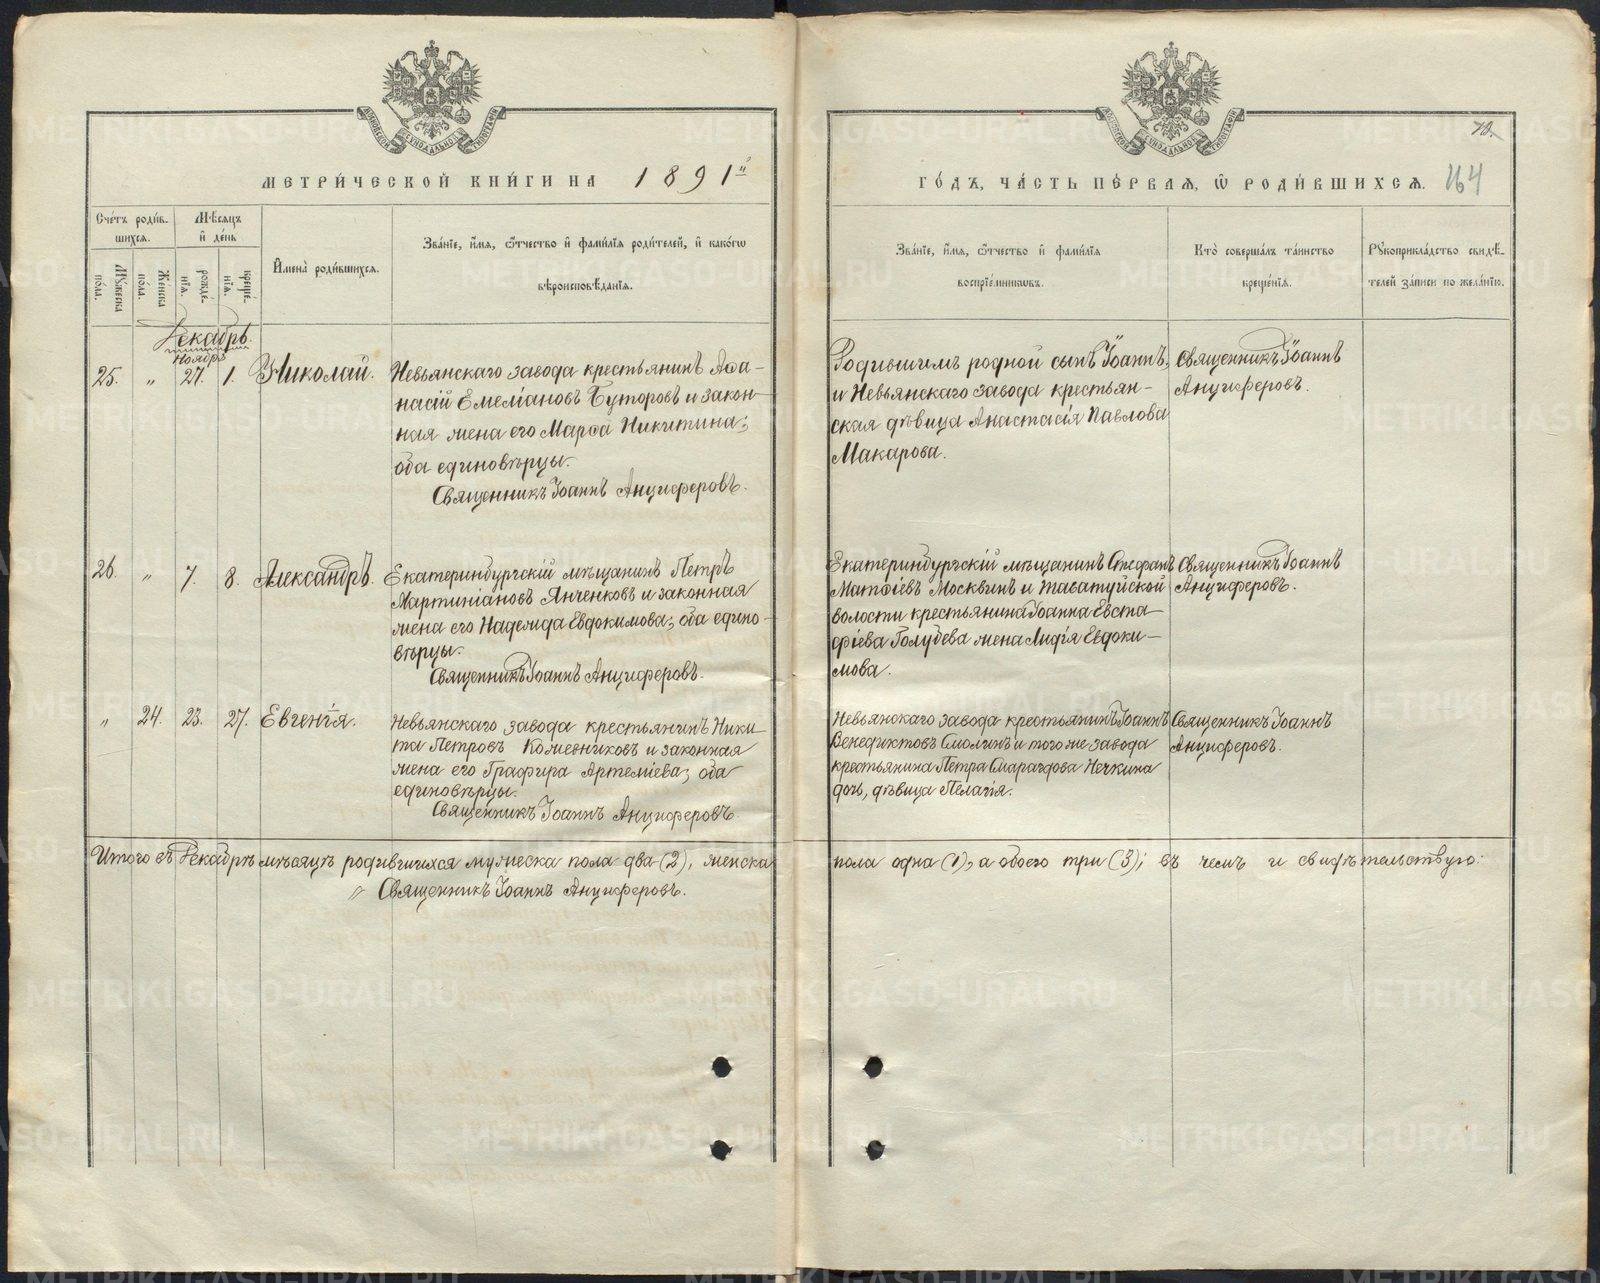 МЕТРИ́ЧЕСКОЙ КНИ́ГИ НА 1891й
Сче́тъ роди́в-
шихся.
Мѣ́сяцъ
и҆ де́нь
Му́жеска
по́ла.
Же́нска
по́ла.
рожде́-
нїя.
креще́-
нїя.
И҆мена̀ роди́вшихся.
Зва́нїе, и҆́мя, ѻ҆́тчество и҆ фами́лїя роди́телей, и҆ како́гѡ
вѣроисповѣ́данїя.
Декабрь.
Ноября
25. " 27. 1. Николай.
Невьянскаго завода крестьянинъ Аѳа-
насій Емеліановъ Буторовъ и закон-
ная жена его Марѳа Никитина;
оба единовѣрцы.
Священникъ Іоаннъ Анциферовъ.
26. " 7. 8. Александръ.
Екатеринбургскій мѣщанинъ Петръ
Мартиніановъ Янченковъ и законная
жена его Надежда Евдокимова; оба едино-
вѣрцы.
Священникъ Іоаннъ Анциферовъ.
" 24. 23. 27. Евгенія.
Невьянскаго завода крестьянинъ Ники-
та Петровъ Кожевниковъ и законная
жена его Графира Артеміева; оба
единовѣрцы.
Священникъ Іоаннъ Анциферовъ
Итого въ Декабрѣ мѣсяцѣ родившихся мужеска пола два (2), женска
Священникъ Іоаннъ Анциферовъ.
72.
ГО́ДЪ, ЧА́СТЬ ПЕ́РВАЯ, Ѡ҆ РОДИ́ВШИХСЯ. 164
Зва́нїе, и҆́мя, ѻ҆́тчество и҆ фами́лїя
воспрїе́мникѡвъ.
Кто̀ соверша́лъ та́инство
креще́нїя.
Рꙋкоприкла́дство свидѣ́-
телей за́писи по жела́нїю.
Родившимъ родной сынъ Іоаннъ,
и Невьянскаго завода крестьян-
ская дѣвица Анастасія Павлова
Макарова.
Священникъ Іоаннъ
Анциферовъ.
Екатеринбургскій мѣщанинъ Стефанъ
Матѳіевъ Москвинъ и Таватуйской
волости крестьянина Іоанна Евста-
фіева Голубева жена Лидія Евдоки-
мова.
Священникъ Іоаннъ
Анциферовъ.
Невьянскаго завода крестьянинъ Іоаннъ
Венедиктовъ Смолинъ и того же завода
крестьянина Петра Смарагдова Нечкина
дочь, дѣвица Пелагія.
Священникъ Іоаннъ
Анциферовъ.
пола одна (1), а обоего три (3); въ чемъ и свидѣтельствую: